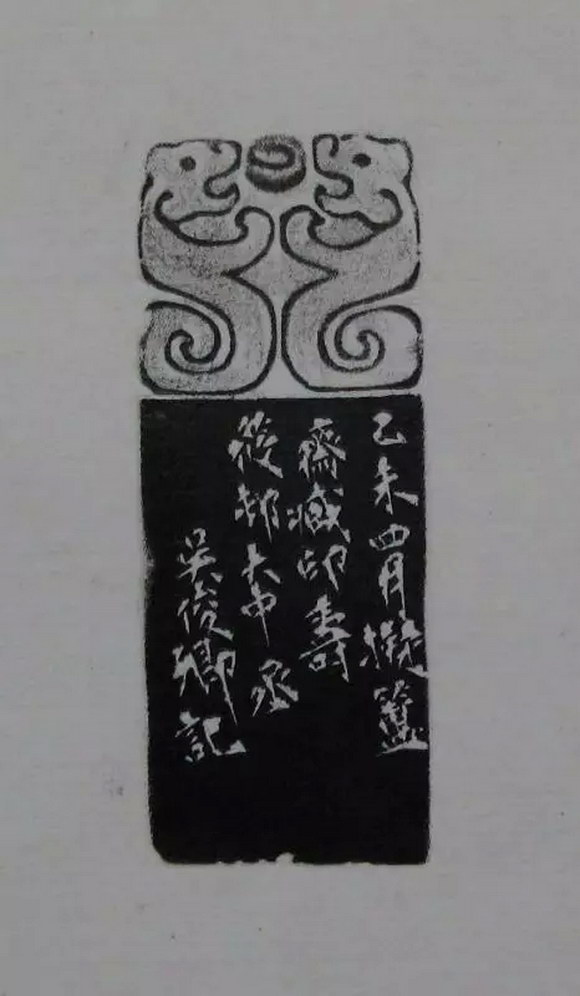 乙未四月擬簠
齋藏印壽
筱邨大中丞
吳俊卿記